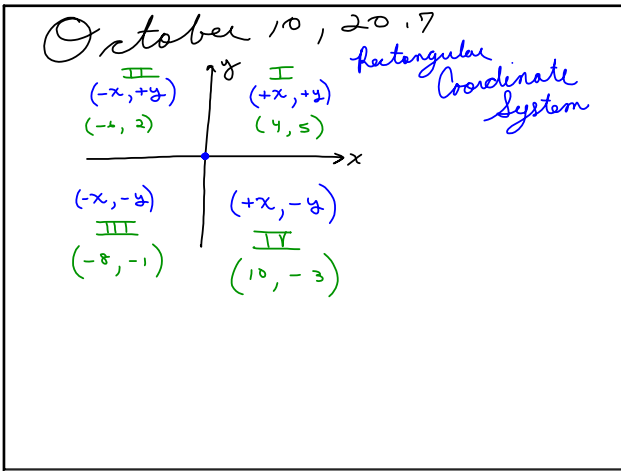 October 10, 2017
Rectangular
Coordinate
System
II
(-x, +y)
(-6, 2)
y
I
(+x, +y)
(4, 5)
x
(-x, -y)
III
(-8, -1)
(+x, -y)
IV
(10, -3)